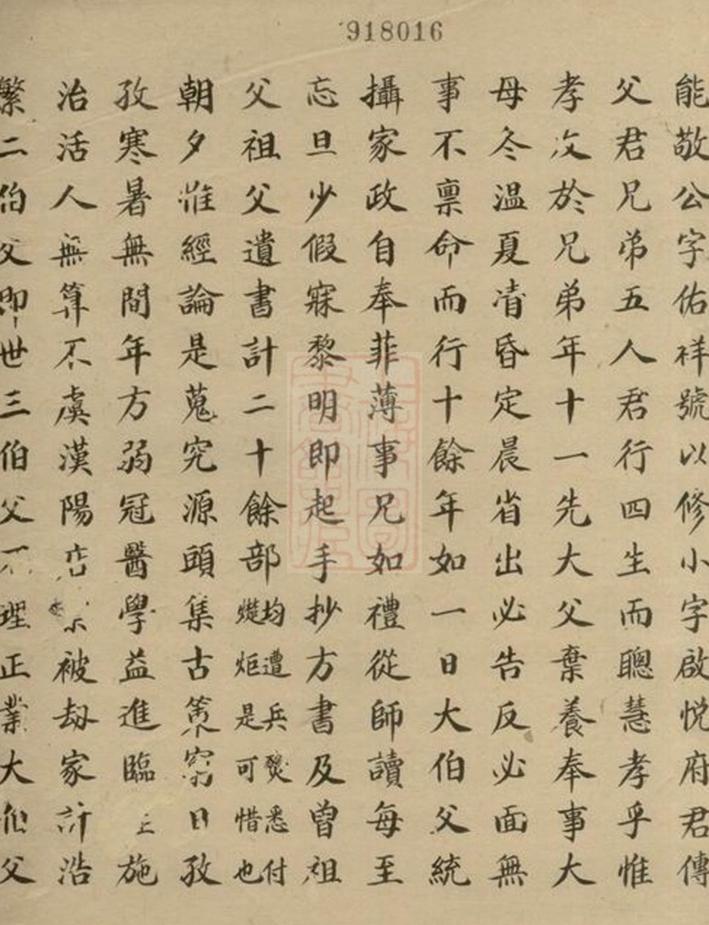 918016
能敬公字佑祥號以修小字啟悅府君傳
父君兄弟五人君行四生而聰慧孝乎惟
孝友於兄弟年十一先大父棄養奉事大
母冬溫夏凊昏定晨省出必告反必面無
事不禀命而行十餘年如一日大伯父統
攝家政自奉菲薄事兄如禮從師讀每至
忘旦少假寐黎明即起手抄方書及曾祖
父祖父遺書計二十餘部均遭兵燹悉付爐炬是可惜也
朝夕惟經論是蒐究源頭集古篆窮日孜
孜寒暑無間年方弱冠醫學益進臨症施
治活人無算不虞漢陽店被劫家計浩
繁二伯父即世三伯父不理正業大伯父